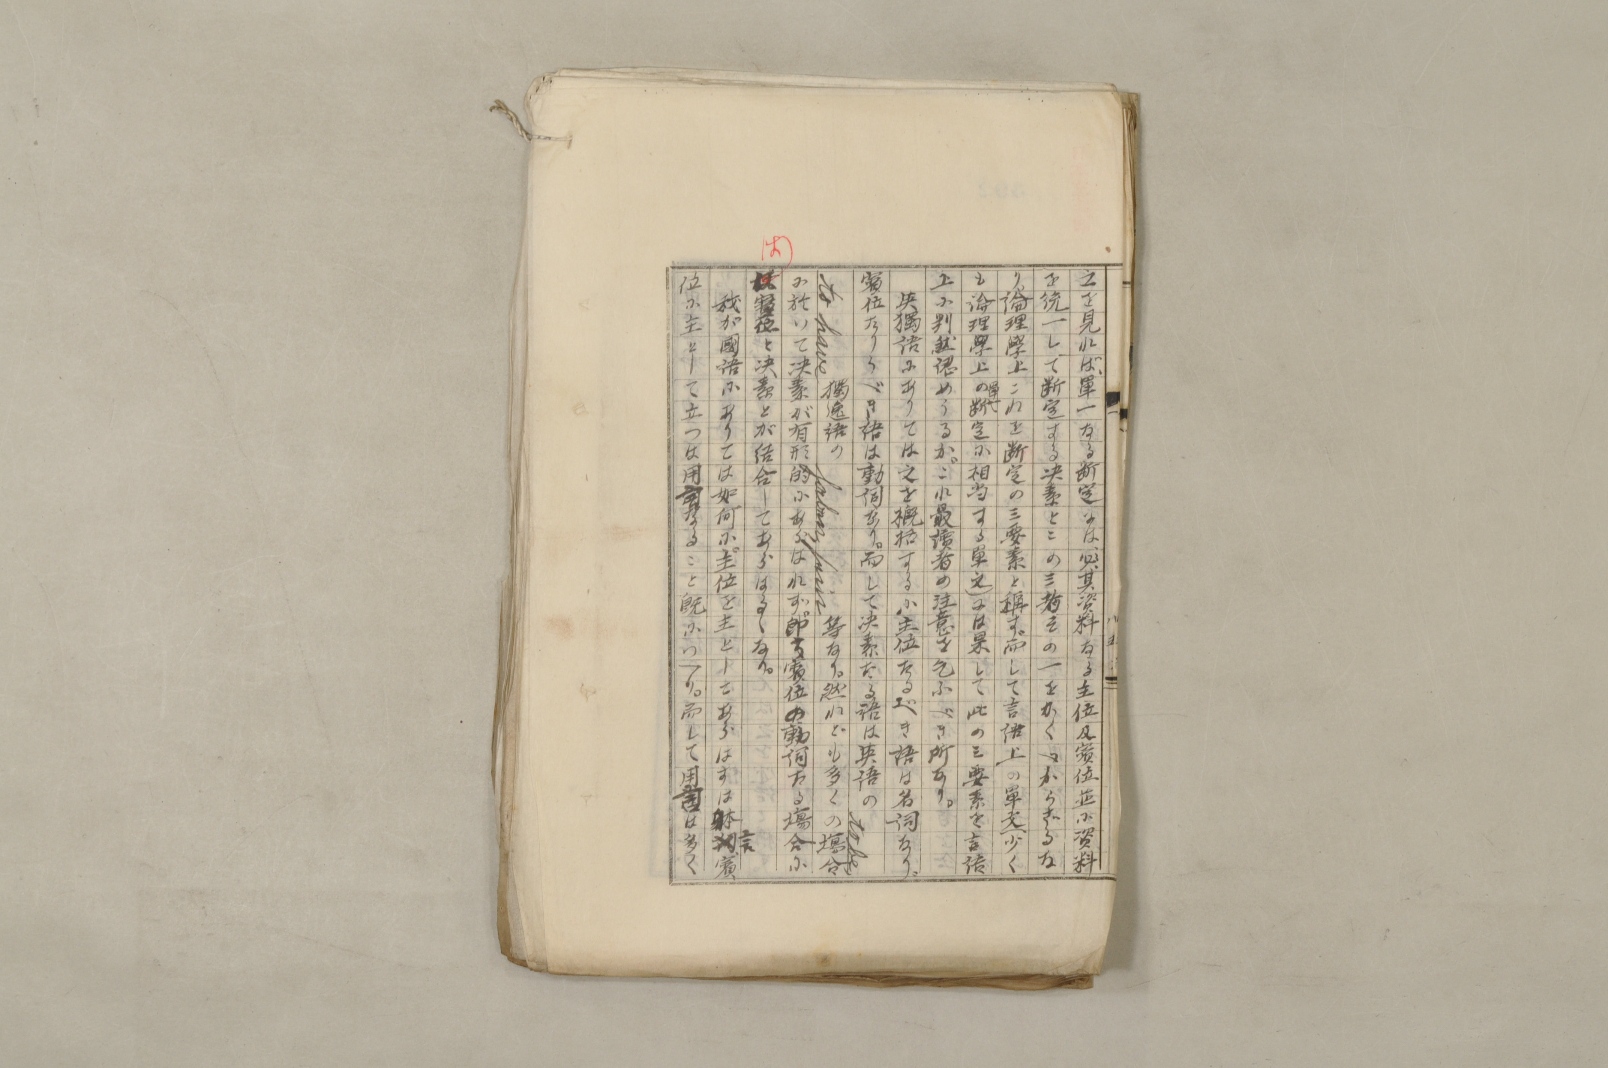 之を見れば、單一なる断定には必其資料なる主位及賓位並に資料
を統一して断定する决素とこの三者その一をかくべからざるな
り。論理學上これを断定の三要素と稱す。而して言語上の單文少く
も論理學上の單一断定に相当する單文には果して此の三要素を言語
上に判然認めうるか。これ最讀者の注意を乞ふべき所なり。
英獨語にありては之を概括するに主位たるべき語は名詞なり。
賓位たりうべき語は動詞なり。而して决素たる語は英語の to be
to have 獨逸語の haben, sein 等なり。然れども多くの塲合
に於いて决素が有形的にあらはれず。即賓位の動詞たる塲合に
は賓位と决素とが結合してあらはるゝなり。
我が國語にありては如何に。主位を主としてあらはすは躰言賓
位に主として立つは用言なること既にいへり。而して用言は多く
(オ)